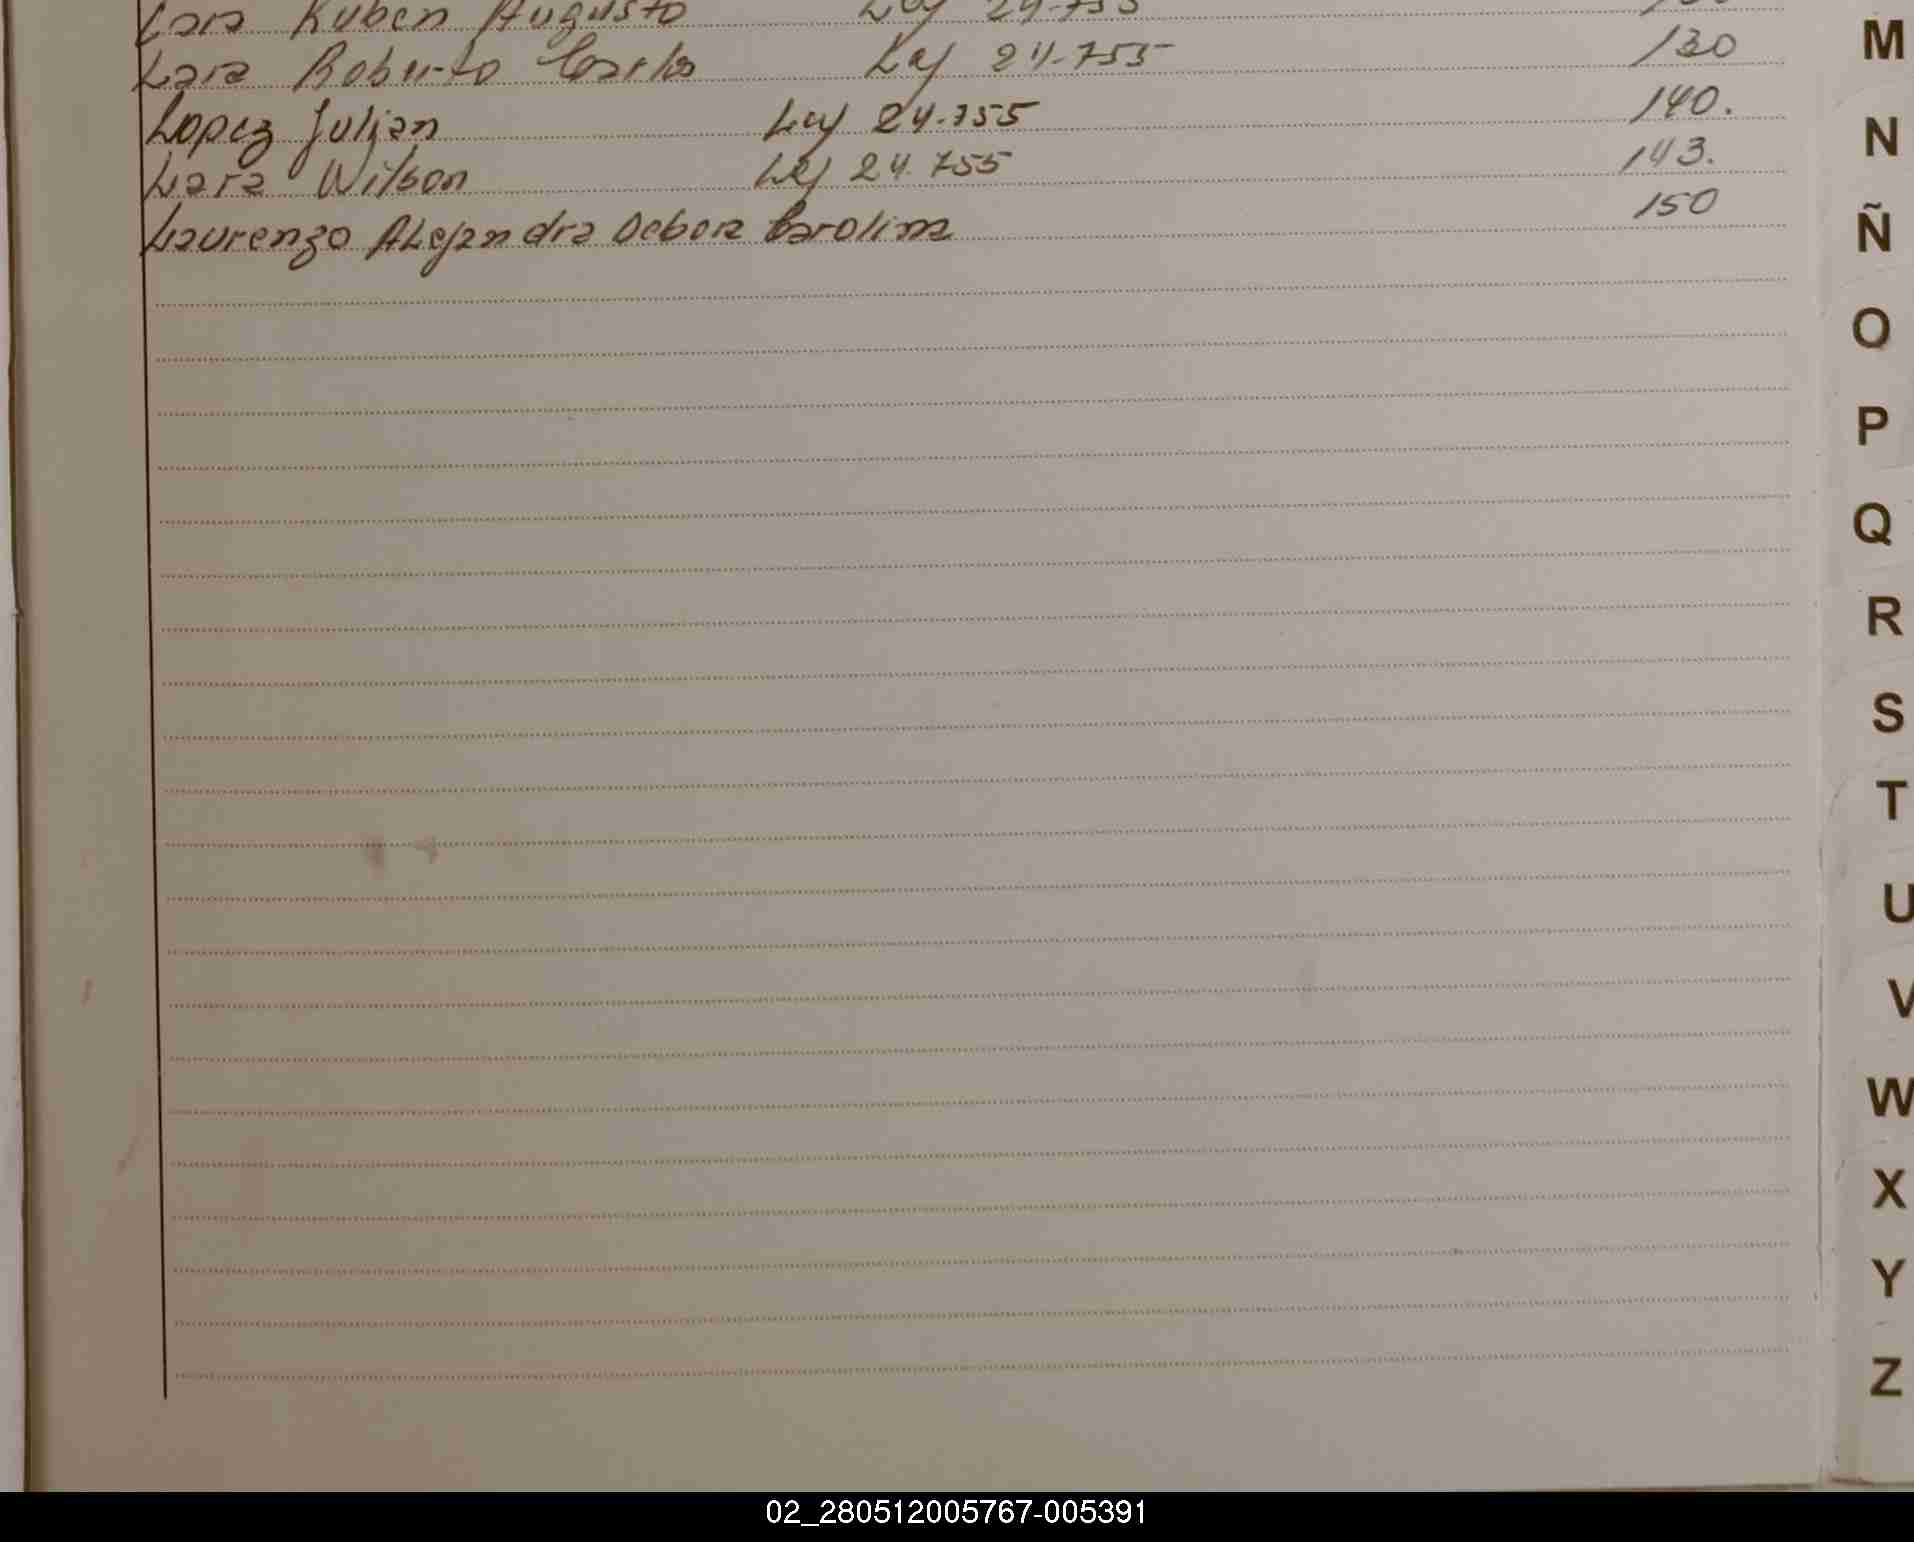 Lara Ruben Augusto Ley 24-755
Lara Roberto Carlos Ley 24-755 130
Lopez Julian Ley 24.755 140.
Lara Wilson Ley 24.755 143.
Laurenzo Alejandra Debora Carolina 150
M
N
Ñ
O
P
Q
R
S
T
U
V
W
X
Y
Z
02_280512005767-005391